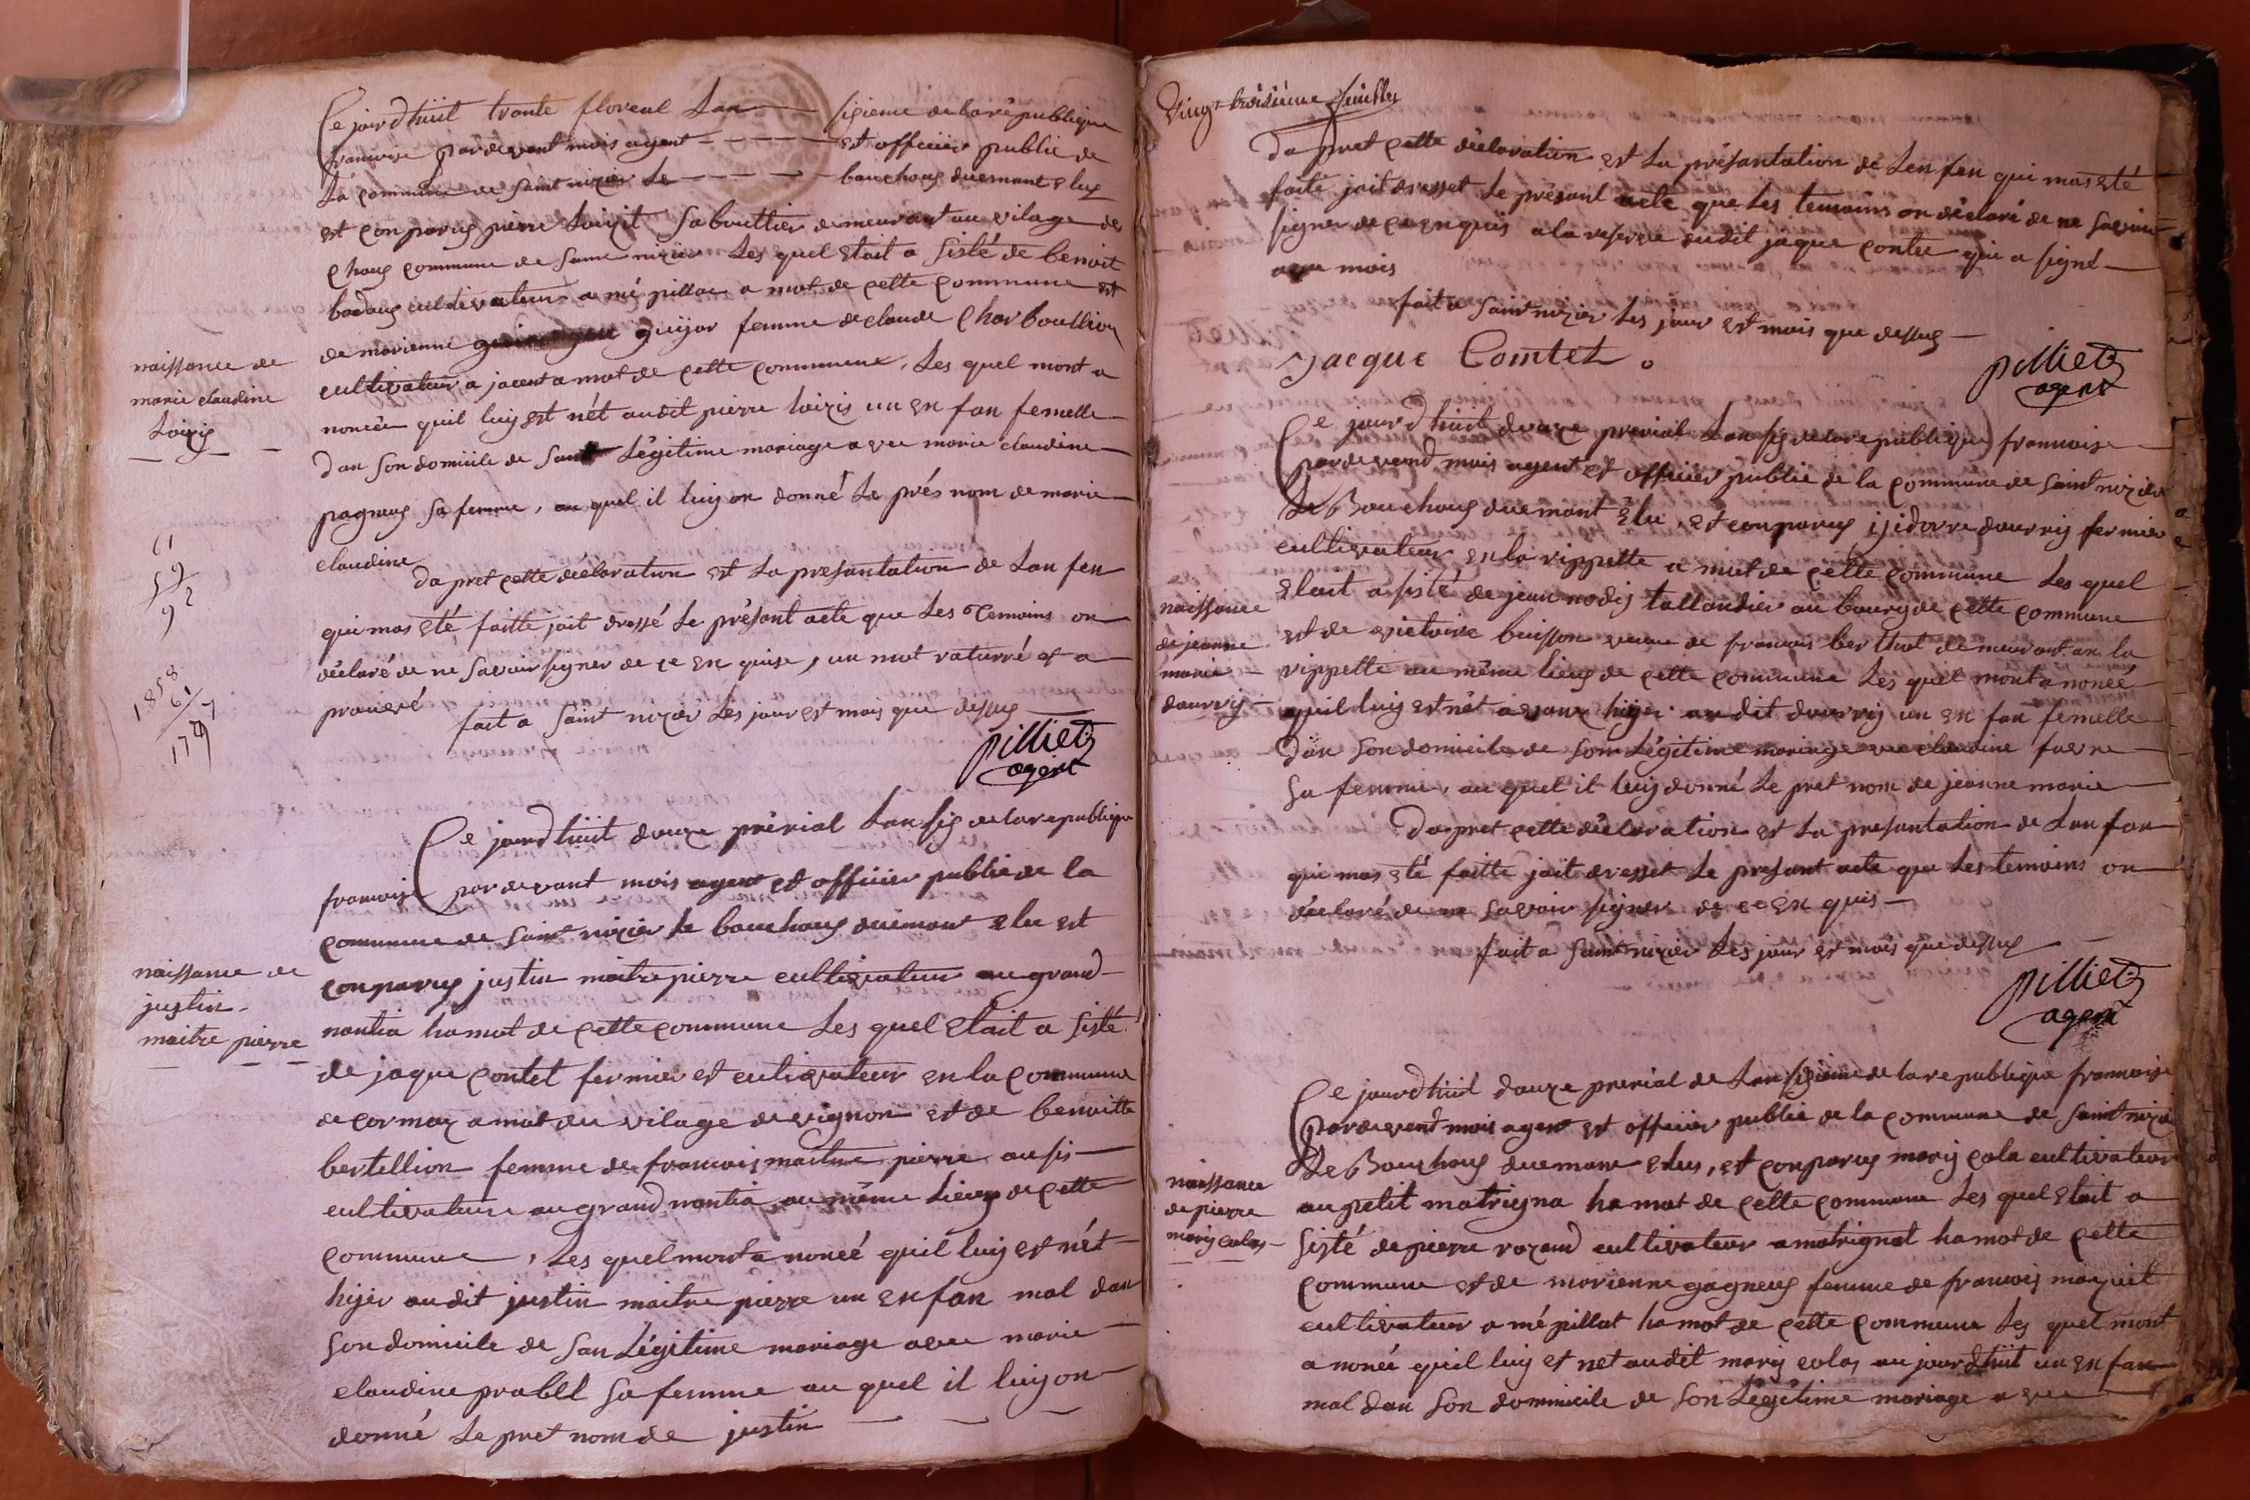 Ce jourdhüit trante floreal Lan — sigieme de la republique
francoise pardevant mois agent - - - - - est officiier public de
La commune de saint nizier Le - - - - - bouchoux duemant elus
est conparus pierre Loizit Saboultier demeurant au vilage de
commune de saint nizier Les quel etait a sisté de benoit
cultivateur a mépillac a mot de cette commune est
de marienne guijor femme de claude Charboullion
cultivateur a jacent a mot de cette commune, Les quel mont a
noncée quil luij est nét audit pierre loizis un en fan femelle
dan son domiciile de Légitime mariage avec marie claudine
pagneux sa femme, au quel il luij on donné Le prés nom de marie
claudine
naissance de
marie claudine
Loizis
da pret cette déclaration est La presantation de Lan fen
qui mas eté faitte jait dressé Le présant acte que Les temoins on
déclaré de ne savoir signer de ce en quise, un mot raturré et a
prouvéé
fait a saint nizier Les jour est mois que dessus
pilliet
agent
1858
1797
Ce jourdhüit douze prérial Lan sis de la republique
francoise pardevant mois agent et officiier public de la
commune de saint nizier Le bouchoux duemant elu est
conparus justin maitrepierre cultivateur au grand
nantia hamot de cette commune Les quel etait a sisté
de jaque contet fermier et cultivateur en la commune
de cormoz amot du vilage de vignon est de benoitte
bertellion femme de francois maitre pierre ausis
cultivateur au grand nantia au même Lieus de cette
commune, Les quel mont a noncé quil luij est nét
hijer audit justin maitre pierre un enfan mal dan
son domicile de san Légitime mariage avec marie
claudine prabel sa femme au quel il luij on
donné Le pret nom de justin
naissance de
justin
maitre pierre
Vingt troisieme feuillet
da pret cette déclaration est La présantation de Len fan qui mas eté
faite jait dresset Le présant acte que Les temoins on déclaré de ne savoir
signer de ce enquis a la reserve dudit jaque contet qui a signé
avec mois
fait a saint nizier Les jour est mois que dessus
Jacque Comtet
pilliet
agent
Ce jourdhüit douze prerial Lan sis de la republique francoise
pardevand mois agent et officiier public de la commune de saint nizier
Le Bouchoux duemant elu, est conparus ijidorre dourij fermier
cultivateur en la rippette a mot de cette commune Les quel
etait a sisté de jean nodij tallandier au bourg de cette commune
est de victoire buisson veuve de francois berthot demeurant an la
rippette au même lieus de cette commune Les quel mont a noncé
quil luij est nét avant hijer au dit dourrij un en fan femelle
dan son domicile de som Légitime mariage vec claudine favre
sa femme, au quel it luij donné Le pret nom de jeanne marie
naissance
de jeanne
marie
dourrij
da pret cette déclaration est La presantation de Lan fan
qui mas eté faitte jait dresset Le presant acte que Les temoins on
déclaré de ne savoir signer de ce en quis
fait a saint nizier Les jour est mois que dessus
pilliet
agent
Ce jourdhüit douze prerial de Lan sigieme de la republique francoise
pardevent mois agent est officiier public de la commune de saint nizier
Le Bouchoux duemant elus, est conparus marij cola cultivateur
au petit matrigna hamot de cette commune Les quel etait a
sisté de pierre rozand cultivateur a matrignat hamot de cette
commune est de marienne gagneux femme de francois mazuit
cultivateur a mépillat hamot de cette commune Les quel mont
a noncé quil luij et net audit marij colas au jourdhüit un en fan
mal dan son domicile de son Légitime mariage avec
naissance
de pierre
marij colas